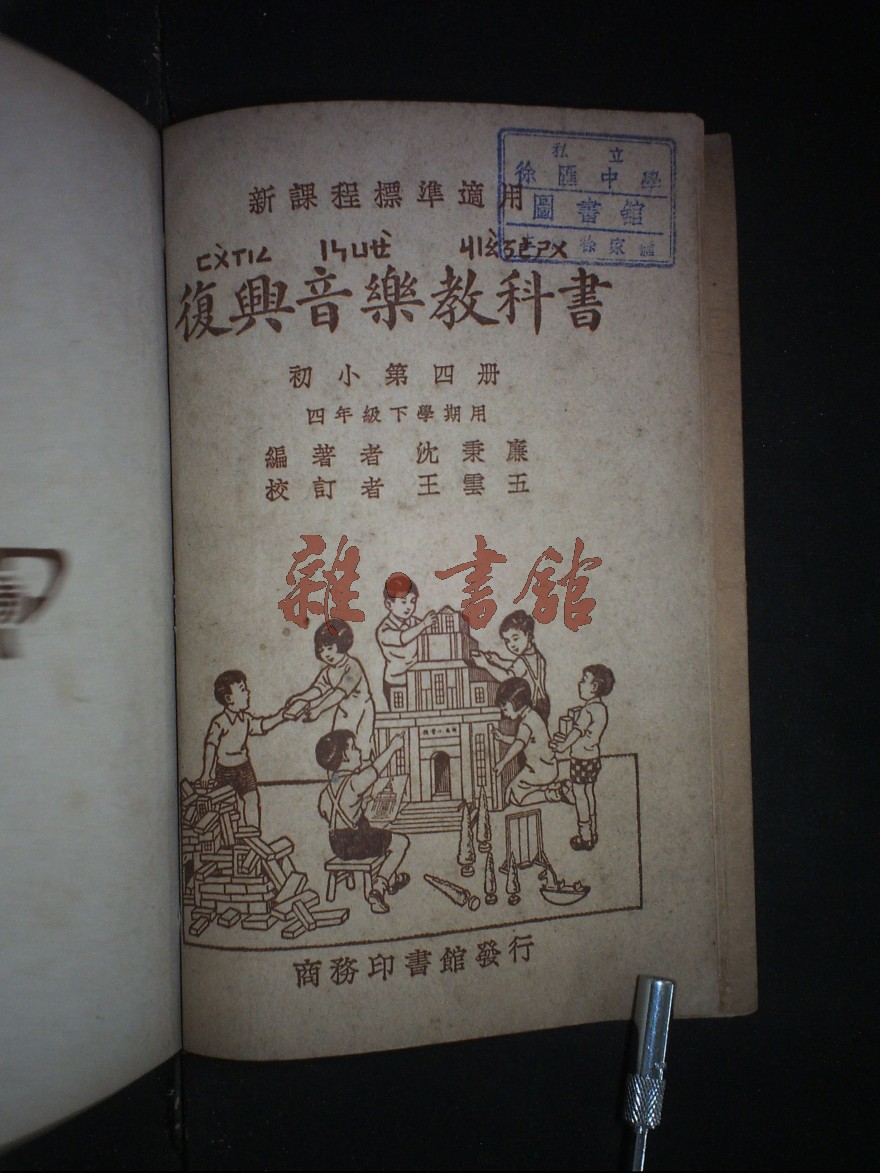 新課程標準適用
私立
徐匯中學
圖書館
徐家匯
復興音樂教科書
初小第四册
四年級下學期用
編著者沈秉廉
校訂者王雲五
雜·書館
商務印書館發行